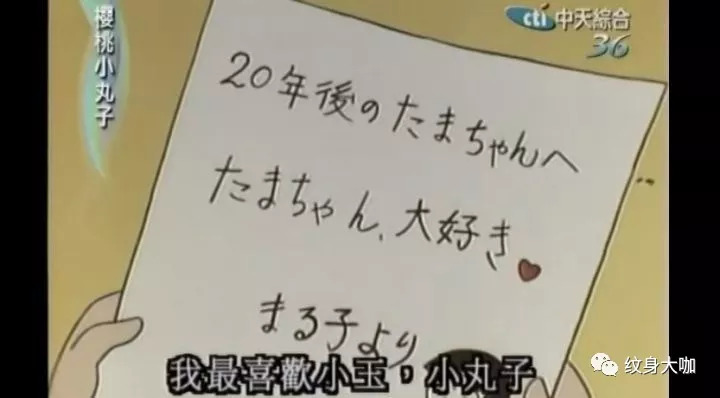 櫻桃小丸子
cti 中天綜合
36
20年後のたまちゃんへ
たまちゃん、大好き♥
まる子より
我最喜歡小玉，小丸子
纹身大咖